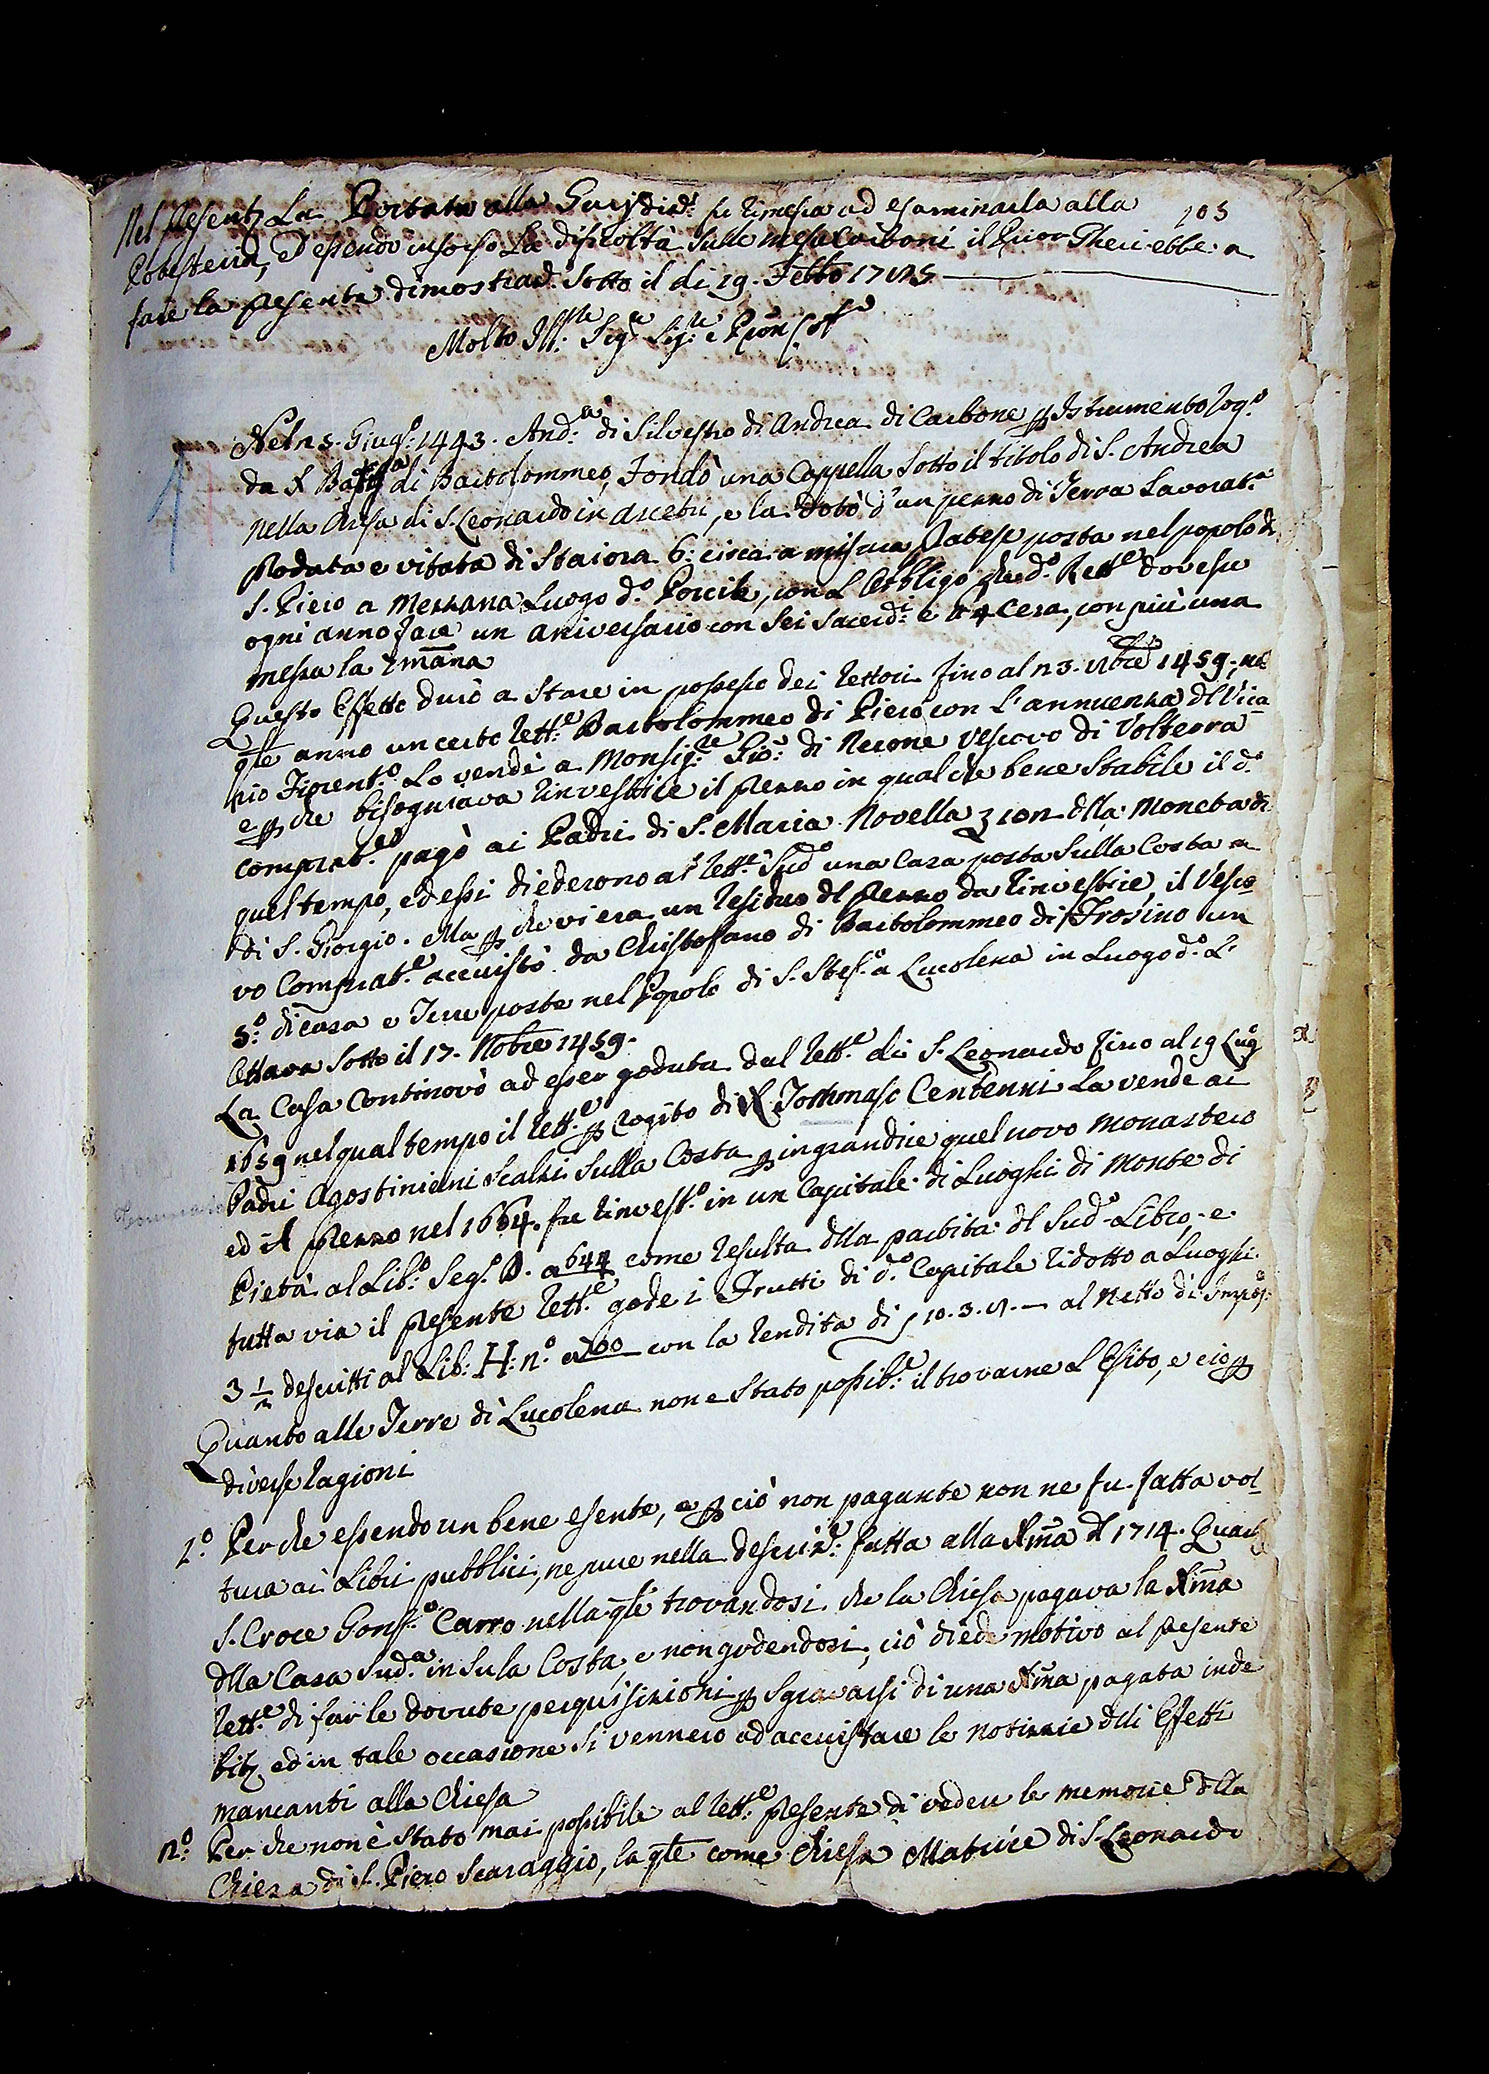 103
Nel presentʒ La Portata alla Giurisdiz.e fu rimessa ad esaminarla alla
Potesteria, Ed essendo insorso Le dificoltà Sulle messe Carboni il Prior Gheri ebbe a
fare la presente dimostraz.e Sotto il di 19. Febb.o
Molto Ill.re Sig.re Sig.re e Pron
Giug.o 1443. And.a di Silvestro di Andrea di Carbone p Istrumento rog.o
da S Batt.a di Bartolommeo, Fondò una Cappella Sotto il titolo di S. Andrea
nella Chiesa di S. Leonardo in Arcetri, e la dotò d'un pezzo di Terra Lavorat.a
Podata e vitata di Staiora 6: circa a misura posta nel popolo di
S. Piero a Mezzana Luogo d.o Porcile, con L'Obbligo che d.o Rett.e dovesse
ogni anno fare un aniversario con Sei Sacerd.i e 4 Cera, con più una
messa la 7mãna
Questo Effetto durò a Stare in possesso dei rettori fino al 23. 1459. nel
qle anno un certo rett.e Bartolommeo di Piero con l'annuenza dl Vica
rio Fiorent.o Lo vendè a Monsig.re Gio: di Nerone Vescovo di Volterra
e p che bisogniava rinvestire il prezzo in qualche bene Stabile il d.o
comprat.e pagò ai Padri di S. Maria Novella dlla Moneta di
quel tempo, ed essi diederono al rett.e Sud.o una Casa posta Sulla Costa a
di S. Giorgio. Ma p che vi era un residuo dl prezzo da rinvestire, il Vesco
vo Comprat.e accuistò da Christofano di Bartolommeo di Frosino un
3.o di casa e Terre poste nel Popolo di S. Stef.o a Lucolena in Luogo d.o L'
Ottava Sotto il 17. Nobre 1459.
La Casa Continovò ad esser goduta dal Rett.e di S. Leonardo fino al 19 Lug.o
1659 nel qual tempo il Rett.e p rogito di S Tommaso Centenni La vende ai
Padri Agostiniani Scalzi Sulla Costa p ingrandire quel novo Monastero
ed il prezzo nel 1664. fu rinvest.o in un Capitale di Luoghi di Monte di
Pietà al Lib.o Seg.o D. a 644 come resulta dlla partita dl Sud.o Libro, e
tutta via il presente rett.e gode i Frutti di d.o Capitale ridotto a Luoghi
3 1/2 descritti al Lib: H: n.o a 200 con la rendita di al Netto di
Quanto alle Terre di Lucolena non e Stato possib.e il trovarne L'Esito, e cio p
diverse ragioni
1.o Per che essendo un bene esente, e p ciò non pagante non ne fu fatta vol=
tura ai Libri pubblici, ne pure nella descriz.e fatta alla Xma dl 1714. Quart
S. Croce Gonf.e Carro nella qle trovandosi che la Chiesa pagava la Xma
dlla Casa Sud.a in Su la Costa, e non godendosi, ciò diede motivo al presente
rett.e di far le dovute perquisizioni p Sgravarsi di una Xma pagata inde
bitʒ ed in tale occasione si vennero ad accuistare le Notizzie dlli Effetti
mancanti alla Chiesa
2.o Per che non è Stato mai possibile al rett.e presente di vedere le memorie dlla
Chiesa di S. Piero Scaraggio, la qle come Chiesa Matrice di S. Leonardo